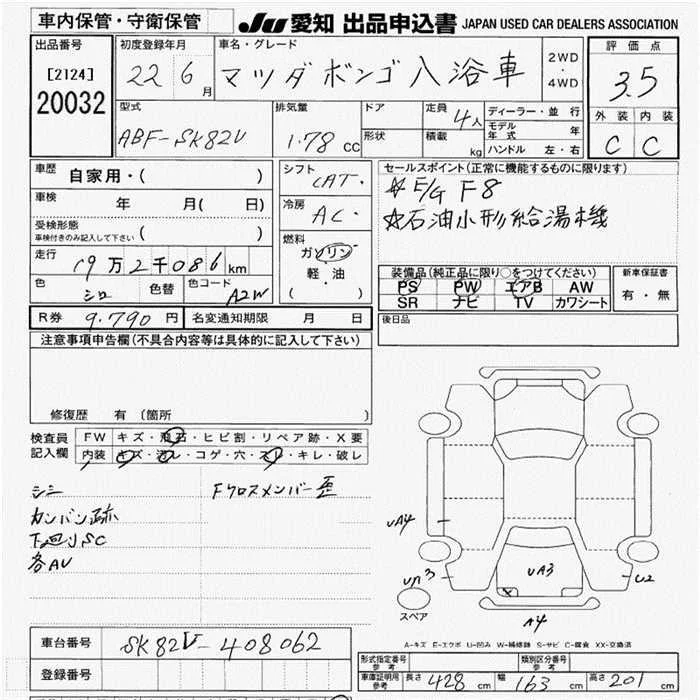 車内保管・守衛保管
JU 愛知 出品申込書 JAPAN USED CAR DEALERS ASSOCIATION
出品番号
[2124]
20032
初度登録年月
22 6 月
車名・グレード
マツダボンゴ 入浴車
2WD
・
4WD
評価点
3.5
型式
ABF-SK82V
排気量
1.78 cc
ドア
形状
定員
4人
積載
kg
ディーラー・並行
モデル年式 年
ハンドル 左・右
外装 内装
C C
車歴 自家用・( )
車検 年 月( 日)
受検形態
車検付きのみ記入して下さい ( )
走行 19万2千086km
色 シロ 色替 色コード A2W
シフト
CAT・
冷房
AC・
燃料
ガソリン
軽・油
( )
セールスポイント(正常に機能するものに限ります)
☆E/G F8
☆石油小形給湯機
装備品(純正品に限り○をつけてください)
PS PW エアB AW
SR ナビ TV カワシート
新車保証書
有・無
R券 9.790 円 名変通知期限 月 日
後日品
注意事項申告欄(不具合内容等は具体的に記入して下さい)
修復歴 有 (箇所 )
検査員記入欄
FW キズ・飛石・ヒビ割・リペア跡・X要
内装 キズ・汚レ・コゲ・穴・スレ・キレ・破レ
シミ
カンバン跡
下廻りSC
各AU
Fクロスメンバー歪
UA4
UA3
UA3
U2
A4
スペア
A-キズ E-エクボ U-凹み W-補修跡 S-サビ C-腐食 XX-交換済
車台番号 SK82V-408062
登録番号
形式指定番号 参考
類別区分番号 参考
車庫証明用 参考 長さ 428 cm 幅 163 cm 高さ 201 cm